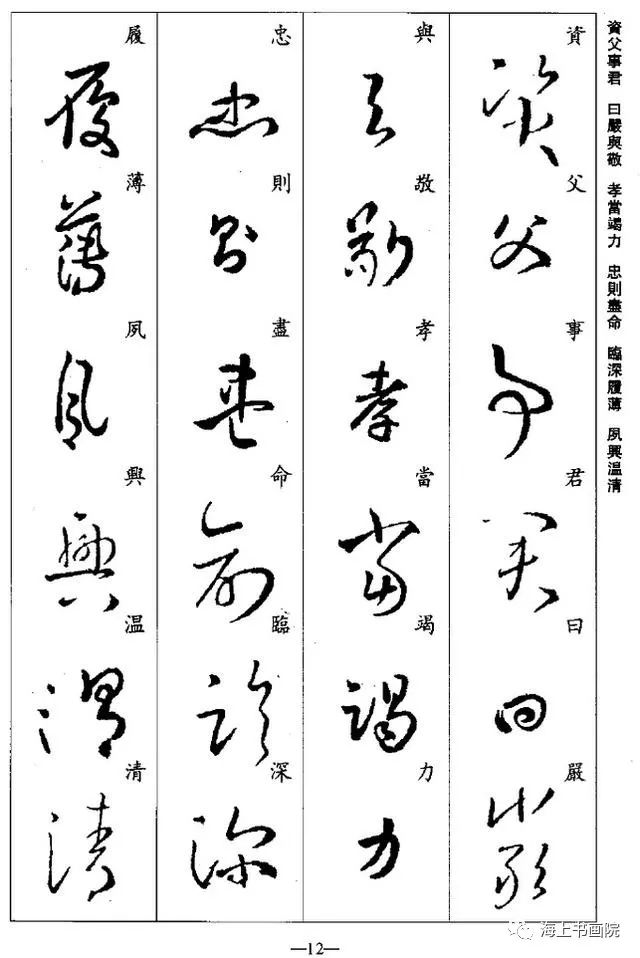 資父事君 曰嚴與敬 孝當竭力 忠則盡命 臨深履薄 夙興温清
資
父
事
君
曰
嚴
與
敬
孝
當
竭
力
忠
則
盡
命
臨
深
履
薄
夙
興
温
清
—12—
海上书画院